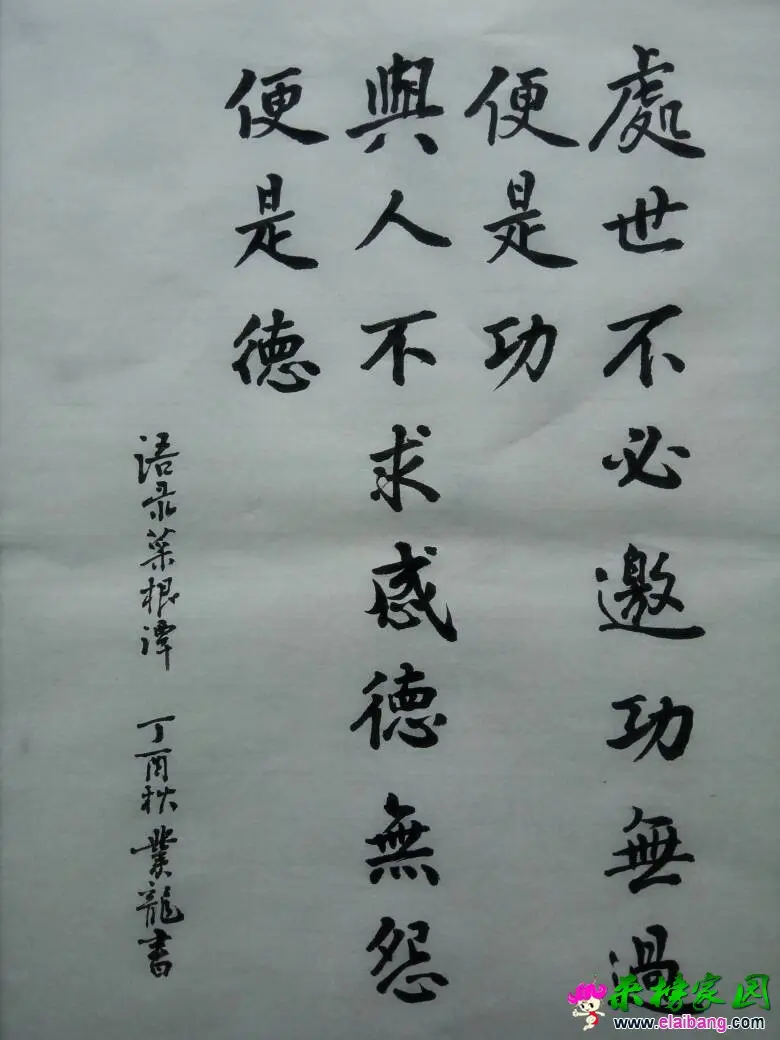 處世不必邀功無過
便是功
與人不求感德無怨
便是德
语录菜根潭 丁酉秋業龍書
来榜家园
www.elaibang.com